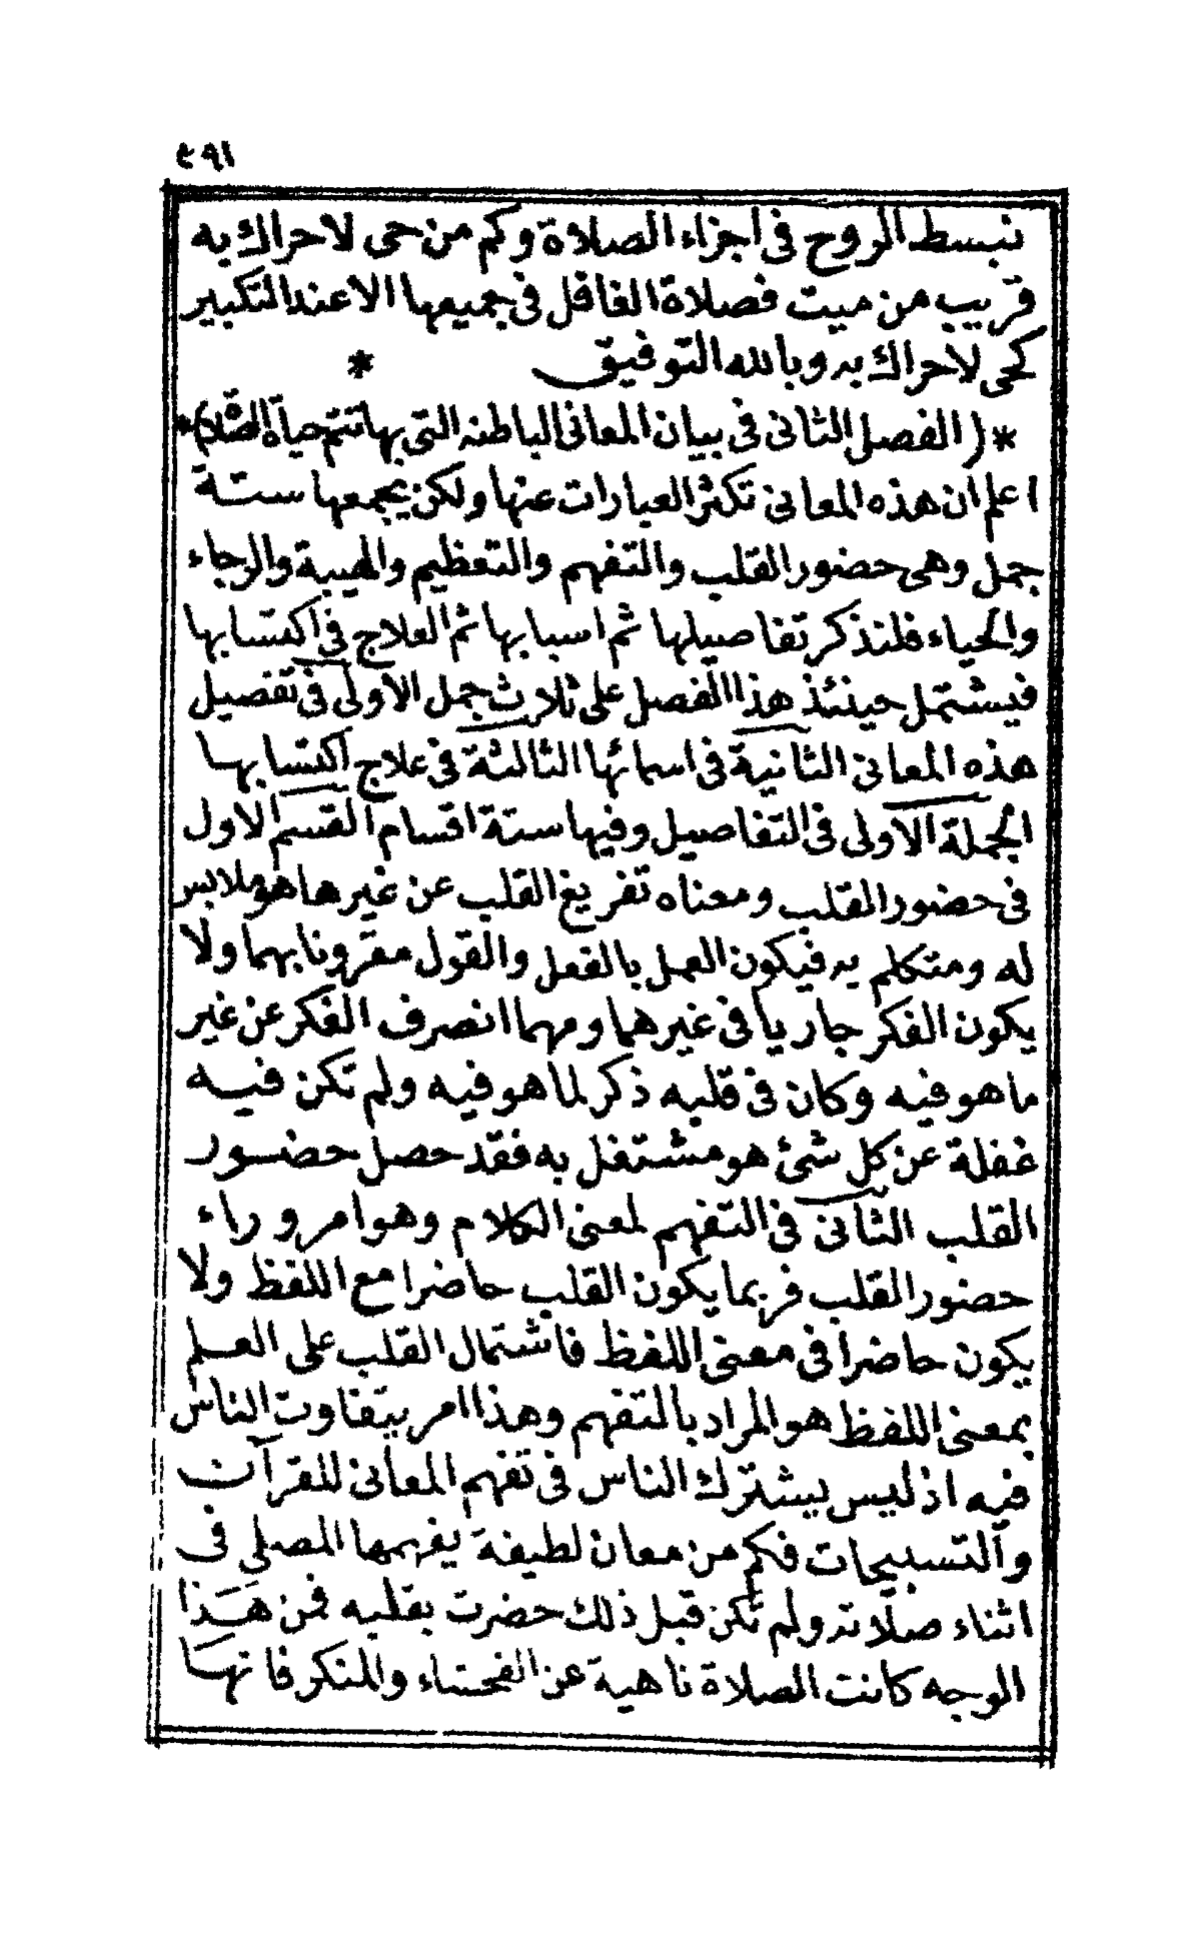 ٤٩١
تنبسط الروح فى اجزاء الصلاة وكم من حى لاحراك به
قريب من ميت فصلاة الغافل فى جميعها الا عند التكبير
كحى لاحراك به وبالله التوفيق *
* ( الفصل الثانى فى بيان المعانى الباطنه التى بها تتم حياة الصلاة ) *
اعلم ان هذه المعانى تكثر العبارات عنها ولكن يجمعها ستة
جمل وهى حضور القلب والتفهم والتعظيم والهيبة والرجاء
والحياء فلنذكر تفاصيلها ثم اسبابها ثم العلاج فى اكتسابها
فيشتمل حينئذ هذا الفصل على ثلاث جمل الاولى فى تفصيل
هذه المعانى الثانية فى اسمائها الثالثة فى علاج اكتسابها
الجملة الاولى فى التفاصيل وفيها ستة اقسام القسم الاول
فى حضور القلب ومعناه تفريغ القلب عن غير ما هو ملابس
له ومتكلم به فيكون العمل بالفعل والقول مقرونا بهما ولا
يكون الفكر جاريا فى غيرهما ومهما انصرف الفكر عن غير
ما هو فيه وكان فى قلبه ذكر لما هو فيه ولم تكن فيه
غفلة عن كل شئ هو مشتغل به فقد حصل حضور
القلب الثانى فى التفهم لمعنى الكلام وهو امر وراء
حضور القلب فربما يكون القلب حاضرا مع اللفظ ولا
يكون حاضرا فى معنى اللفظ فاشتمال القلب على العلم
بمعنى اللفظ هو المراد بالتفهم وهذا امر يتفاوت الناس
فيه اذ ليس يشترك الناس فى تفهم المعانى للقرآن
والتسبيحات فكم من معان لطيفة يفهمها المصلى فى
اثناء صلاته ولم تكن قبل ذلك حضرت بقلبه فمن هذا
الوجه كانت الصلاة ناهية عن الفحشاء والمنكر فانها